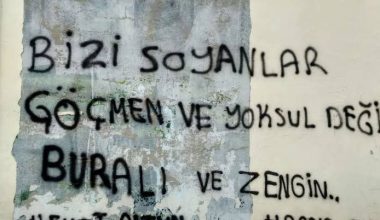 BİZİ SOYANLAR
GÖÇMEN, VE YOKSUL DEĞİ
BURALI VE ZENGİN..